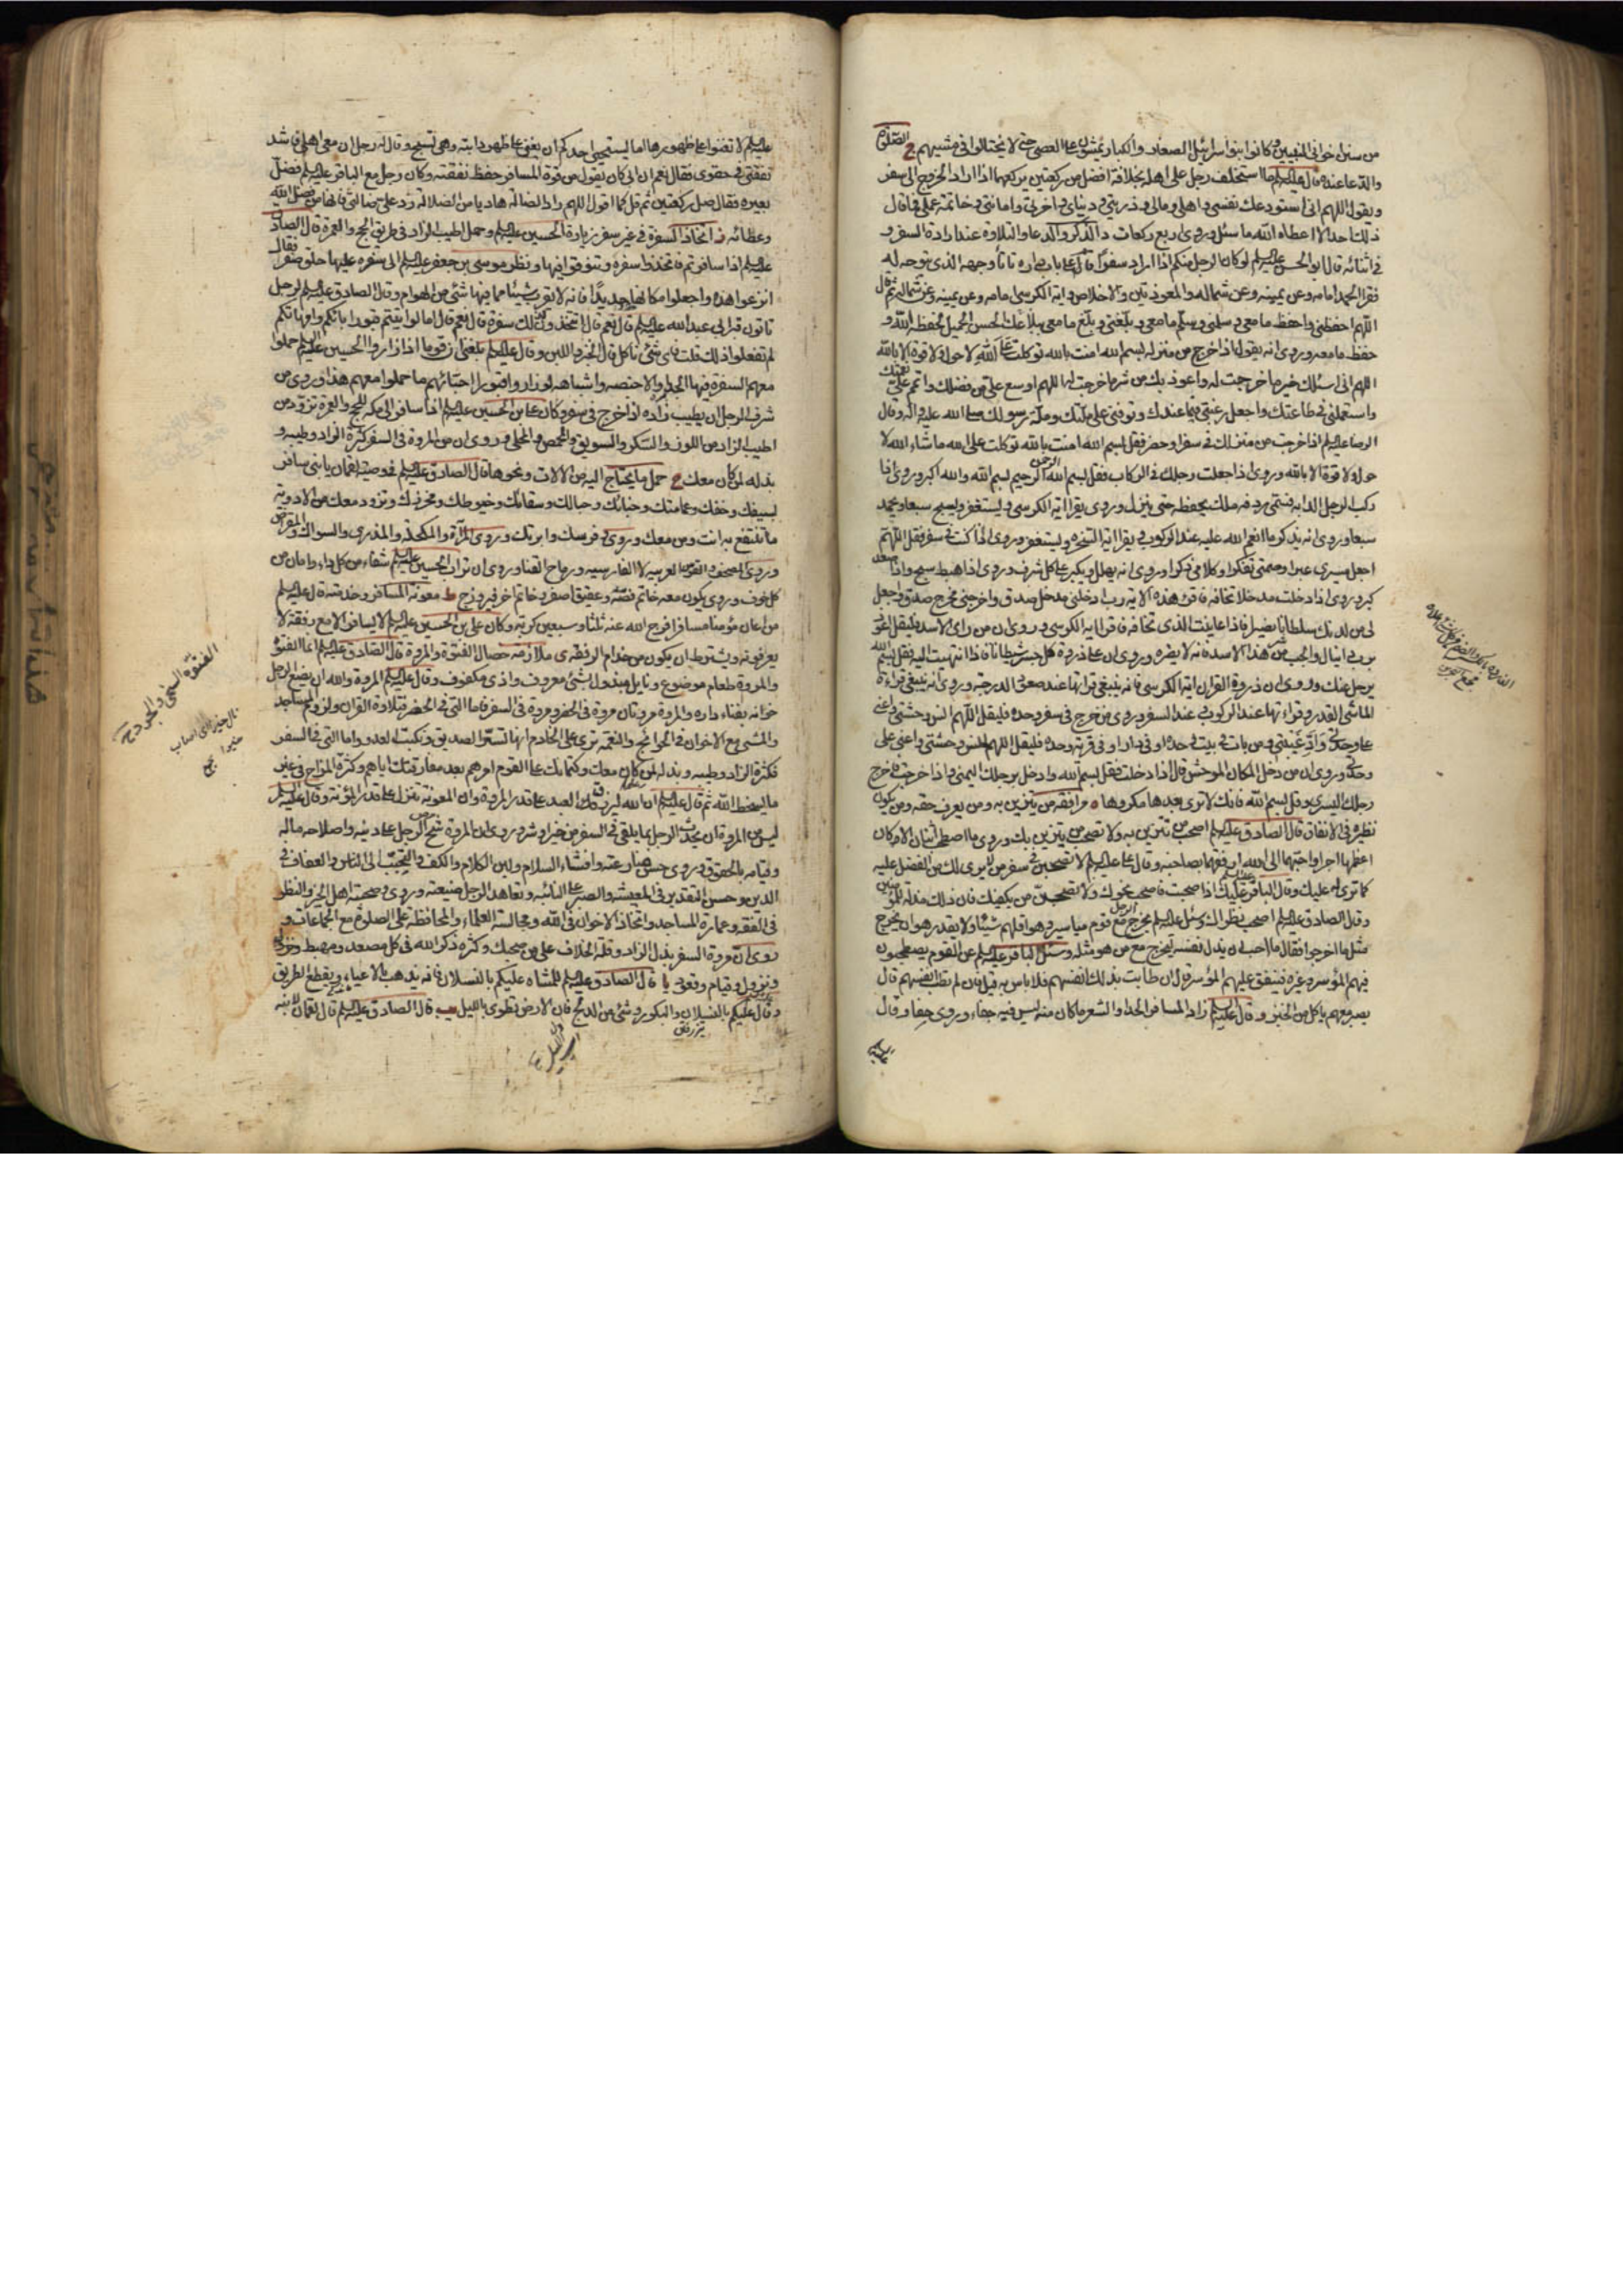 من سنن اخوانى النبيين وكانوا بنوا اسرائيل الصغار والكبار يمشون على العصى حتى لا يختالوا فى مشيهم ج الصلوة
والدعا عنده قال عليه السلم ما استخلف رجل على اهله بخلافة افضل من ركعتين يركعهما اذا اراد الخروج الى سفر
ويقول اللهم انى استودعك نفسى واهلى ومالى وذريتى ودنياى واخرتى وامانتى وخاتمة عملى فما قال
ذلك احد الا اعطاه الله ما سئل وروى اربع ركعات د الذكر والدعا والتلاوة عند ارادة السفر و
فى اثنائه قال ابو الحسن عليه السلم لو كان الرجل منكم اذا اراد سفرا قام على باب داره تلقاء وجهه الذى يتوجه له
فقرا الحمد امامه وعن يمينه وعن شماله والمعوذتين والاخلاص واية الكرسى امامه وعن يمينه وعن شماله ثم قال
اللهم احفظنى واحفظ ما معى وسلمنى وسلم ما معى وبلغنى وبلغ ما معى ببلاغك الحسن الجميل لحفظه الله و
حفظ ما معه وروى انه يقول اذا خرج من منزله بسم الله امنت بالله توكلت على الله لا حول ولا قوة الا بالله
اللهم انى اسئلك خير ما خرجت له واعوذ بك من شر ما خرجت له اللهم اوسع على من فضلك واتمم على نعمتك
واستعملنى فى طاعتك واجعل رغبتى فيما عندك وتوفنى على ملتك وملة رسولك صلى الله عليه واله وقال
الرضا عليه السلم اذا خرجت من منزلك فى سفر او حضر فقل بسم الله امنت بالله توكلت على الله ما شاء الله لا
حول ولا قوة الا بالله وروى اذا جعلت رجلك فى الركاب فقل بسم الله الرحمن الرحيم بسم الله والله اكبر وروى اذا
ركب الرجل الدابة فسمى ردفه ملك يحفظه حتى ينزل وروى يقرا اية الكرسى ويستغفر ويسبح سبعا ويحمد
سبعا وروى انه يذكر ما انعم الله عليه عند الركوب ثم يقرا اية السخره ويستغفر وروى اذا كنت فى سفر فقل اللهم
اجعل مسيرى عبرا وصمتى تفكرا وكلامى ذكرا وروى انه يهلل ويكبر على كل شرف وروى اذا هبط سبح واذا صعد
كبر وروى اذا دخلت مدخلا تخافه فاقرء هذه الاية رب ادخلنى مدخل صدق واخرجنى مخرج صدق واجعل
لى من لدنك سلطانا نصيرا فاذا عاينت الذى تخافه فاقرا اية الكرسى وروى ان من راى الاسد فليقل اعوذ
برب دانيال والجب من شر هذا الاسد فانه لا يضره وروى ان على ذروة كل جسر شيطانا فاذا انتهيت اليه فقل بسم الله
يرحل عنك وروى ان ذروة القران اية الكرسى فانه ينبغى قرائها عند صعود الدرجة وروى انه ينبغى قراءة
الماشى القدر وقراءتها عند الركوب فى عند السفر وروى من خرج فى سفر وحده فليقل اللهم انس وحشتى واعنى
على وحدتى واد غيبتى ومن بات فى بيت وحده او فى دار او فى قرية وحده فليقل اللهم انس وحشتى واعنى على
وحدتى وروى ان من دخل المكان الموحش قال اذا دخلت فقل بسم الله وادخل برجلك اليمنى واذا خرجت فاخرج
رجلك اليسرى وقل بسم الله فانك لا ترى بعدها مكروها ه مرافقه من يتزين به ومن يعرف حقه ومن يكون
نظيره فى الانفاق قال الصادق عليه السلم اصحب من تتزين به ولا تصحب من يتزين بك وروى ما اصطحب اثنان الا وكان
اعظمهما اجرا واحبهما الى الله ارفقهما بصاحبه وقال على عليه السلم لا تصحبن فى سفر من لا يرى لك من الفضل عليه
كما ترى له عليك وقال الباقر عليه السلم اذا صحبت فاصحب نحوك ولا تصحبن من يكفيك فان ذلك مذلة للمؤمنين
وقال الصادق عليه السلم اصحب نظراك وسئل عليه السلم يخرج الرجل مع قوم مياسير وهو اقلهم شيئا ولا يقدر هو ان يخرج
مثل ما اخرجوا فقال ما احب ان يذل نفسه ليخرج مع من هو مثله وسئل الباقر عليه السلم عن القوم يصطحبون
فيهم الموسر وغيره فينفق عليهم الموسر قال ان طابت بذلك انفسهم فلا باس به قيل فان لم تطب انفسهم قال
يصير معهم ياكل من الخبز وقال عليه السلم زاد المسافر الحدا والشعر ما كان منه ليس فيه جفاء وروى خفا وقال
عليه السلم لا تغنوا على ظهورها اما يستحيى احدكم ان يغنى على ظهر دابته وهى تسبح وقال له رجل ان معى اهلى فاشد
نفقتى فى حقوى فقال نعم ان ابى كان يقول من قوة المسافر حفظ نفقته وكان رجل مع الباقر عليه السلم فضل
بعيره فقال صل ركعتين ثم قل كما اقول اللهم راد الضالة هاديا من الضلالة رد على ضالتى فانها من فضل الله
وعطائه ز اتخاذ السفرة فى غير سفر زيارة الحسين عليه السلم وحمل اطيب الزاد فى طريق الحج والعمرة قال الصادق
عليه السلم اذا سافرتم فاتخذوا سفرة وتنوقوا فيها ونظر موسى بن جعفر عليه السلم الى سفره عليها حلق صفر فقال
انزعوا هذه واجعلوا مكانها حديدا فانه لا يقرب شيئا مما فيها شئ من الهوام وقال الصادق عليه السلم لرجل
تاتون قبر ابى عبد الله عليه السلم قال نعم قال اتتخذون لذلك سفرة قال نعم قال اما لو اتيتم قبور ابائكم وامهاتكم
لم تفعلوا ذلك قلت فاى شئ ناكل قال الخبز واللبن وقال عليه السلم بلغنى ان قوما اذا زاروا الحسين عليه السلم حملوا
معهم السفرة فيها الجداء والاخبصه واشباهه لو زاروا قبور احبائهم ما حملوا معهم هذا وروى من
شرف الرجل ان يطيب زاده اذا خرج فى سفر وكان على بن الحسين عليه السلم اذا سافر الى مكه للحج والعمرة تزود من
اطيب الزاد من اللوز والسكر والسويق والمحمص والمحلى وروى ان من المروة فى السفر كثرة الزاد وطيبه و
بذله لمن كان معك ح حمل ما يحتاج اليه من الالات ونحوها قال الصادق عليه السلم فى وصية لقمان يا بنى سافر
بسيفك وخفك وعمامتك وخبائك وحبالك وسقائك وخيوطك ومخرزك وتزود معك من الادوية
ما تنتفع به انت ومن معك وروى وفرسك وابرتك وروى المرآة والمكحلة والمذرى والسواك والمقراض
وروى المصحف والقوس العربيه لا الفارسيه ورماح القنا وروى ان تراب الحسين عليه السلم شفاء من كل داء وامان من
كل خوف وروى يكون معه خاتم فضة وعقيق اصفر وخاتم اخر فيروزج ط معونة المسافر وخدمته قال عليه السلم
من اعان مؤمنا مسافرا فرج الله عنه ثلثا وسبعين كربة وكان على بن الحسين عليه السلم لا يسافر الا مع رفقة لا
يعرفونه ويشترط ان يكون من خدام الرفقه ى ملازمه خصال الفتوة والمروة قال الصادق عليه السلم انما الفتوة
والمروة طعام موضوع ونايل مبذول بشئ معروف واذى مكفوف وقال عليه السلم المروة والله ان يضع الرجل
خوانه بفناء داره والمروة مروتان مروة فى الحضر ومروة فى السفر فاما التى فى الحضر فتلاوة القران ولزوم المساجد
والمشى مع الاخوان فى الحوائج والنعمة ترى على الخادم انها تسر الصديق وتكبت العدو واما التى فى السفر
فكثرة الزاد وطيبه وبذله لمن كان معك وكتمانك على القوم امرهم بعد مفارقتك اياهم وكثرة المزاح فى غير
ما يسخط الله ثم قال عليه السلم ان الله ليرزق العبد على قدر المروة وان المعونة تنزل على قدر المؤنة وقال عليه السلم
ليس من المروة ان يحدث الرجل بما يلقى فى السفر من خير او شر وروى ان المروة شح الرجل على دينه واصلاحه ماله
وقيامه بالحقوق وروى حسن وافشاء السلام ولين الكلام والكف والتحبب الى الناس والعفاف فى
الدين وحسن التقدير فى المعيشه والصبر على النائبه وتعاهد الرجل ضيعته وروى وصحبة اهل الخير والنظر
فى الفقه وعمارة المساجد واتخاذ الاخوان فى الله ومجالسة العلماء والمحافظة على الصلوة مع الجماعات و
روى ان مروة السفر بذل الزاد وقلة الخلاف على من صحبك وكثرة ذكر الله فى كل مصعد ومهبط ونزول
ونزول وقيام وقعود يا قال الصادق عليه السلم للمشاه عليكم بالنسلان فانه يذهب بالاعياء ويقطع الطريق
وقال عليكم بالنسلان والبكور وشئ من الدلج فان الارض تطوى بالليل يب قال الصادق عليه السلم قال لقمان لابنه
الفتوة السخى والجود ص